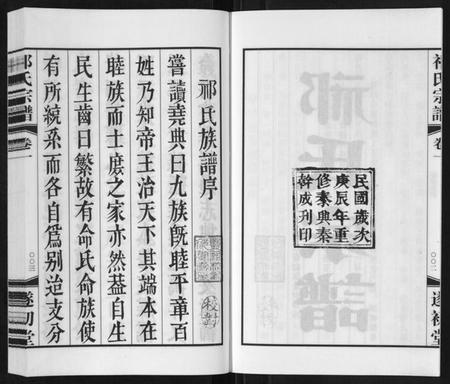 祁氏宗譜
卷一
〇〇二
遂初堂
民國歲次
庚辰年重
修泰興秦
幹成刊印
祁氏族譜序
嘗讀堯典曰九族既睦平章百
姓乃知帝王治天下其端本在
睦族而士庶之家亦然葢自生
民生齒日繁故有命氏命族使
有所統系而各自爲别治支分
祁氏宗譜
卷一
〇〇三
遂初堂